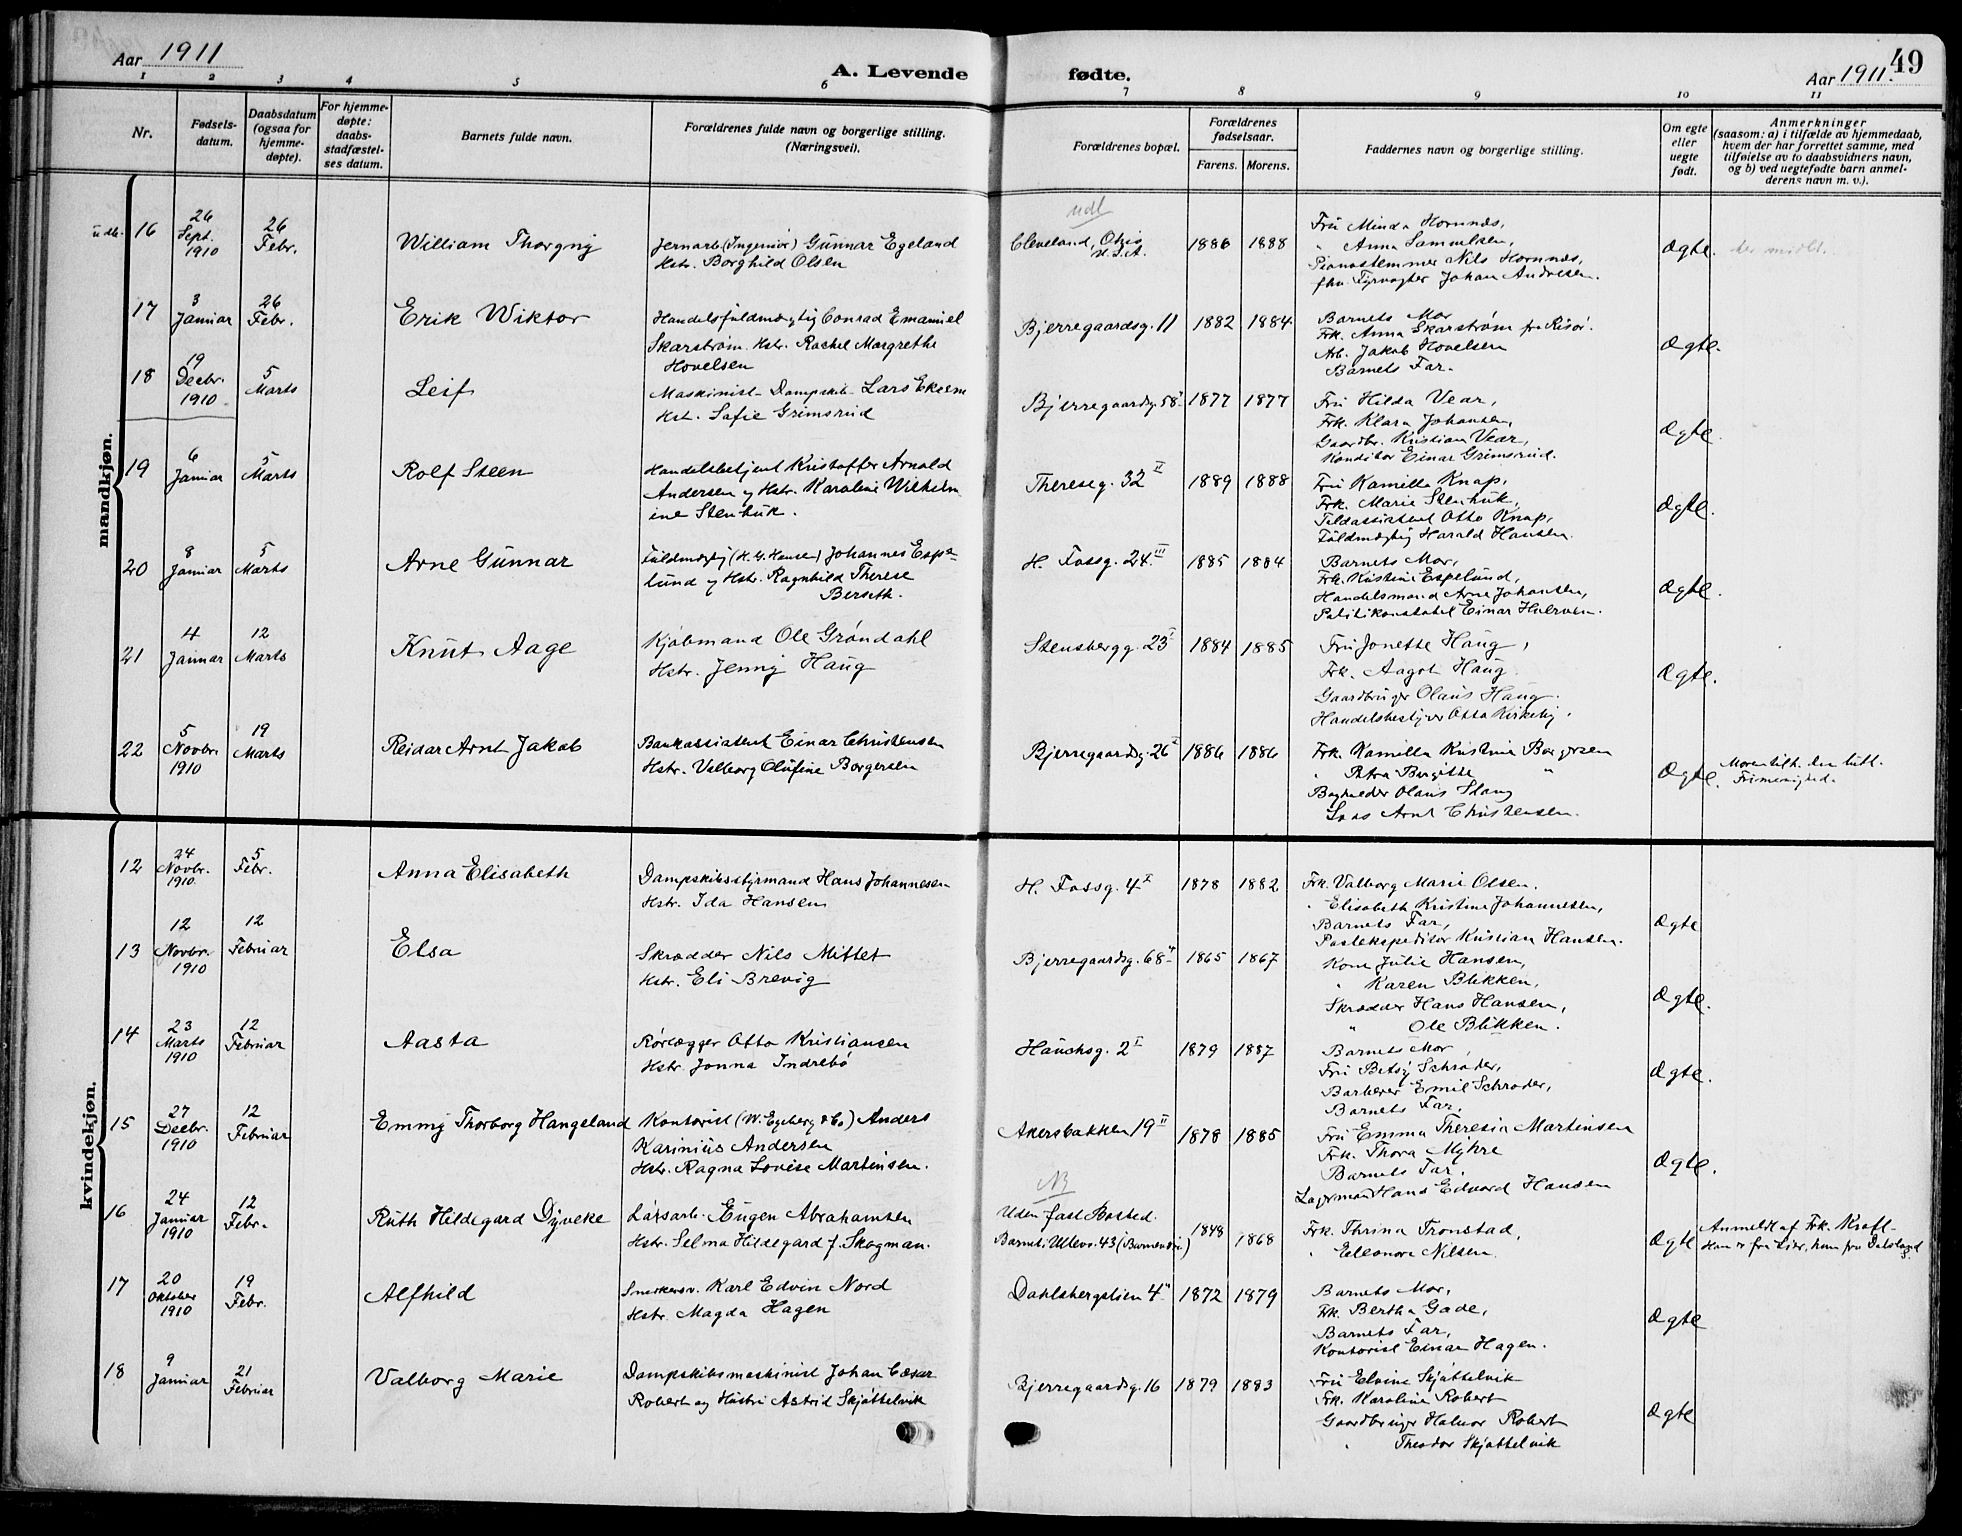 Aar 1911
A. Levende fødte.
Aar 1911.
49
1 2 3 4 5 6 7 8 9 10 11
Nr.
Fødsels-
datum.
Daabsdatum
(ogsaa for
hjemme-
døpte).
For hjemme-
døpte:
daabs-
stadfæstel-
ses datum.
Barnets fulde navn.
Forældrenes fulde navn og borgerlige stilling.
(Næringsvei).
Forældrenes bopæl.
Forældrenes
fødselsaar.
Farens. Morens.
Faddernes navn og borgerlige stilling.
Om egte
eller
uegte
født.
Anmerkninger
(saasom: a) i tilfælde av hjemmedaab,
hvem der har forrettet samme, med
tilføielse av to daabsvidners navn,
og b) ved uegtefødte barn anmel-
derens navn m. v.).
mandkjøn.
udl. 16
26
Sept.
1910
26
Febr.
William Thorgny
Jernarb. (Ingeniør) Gunnar Egeland
Hstr. Borghild Olsen
udl
Cleveland, Ohio
U.S.A.
1886 1888
Fru Minda Hornnæs,
" Anna Samuelsen,
Pianostemmer Nils Hornnæs,
fhv. Fyrvogter Johan Andresen.
Ægte.
17
3
Januar
26
Febr.
Erik Wiktor
Handelsfuldmægtig Conrad Emanuel
Skarstrøm. Hstr. Rachel Margrethe
Hovelsen
Bjerregaardsg. 11
1882 1884
Barnets Mor
Frk. Anna Skarstrøm fra Risør.
Arb. Jakob Hovelsen
Barnets Far.
Ægte.
18
19
Decbr.
1910
5
Marts
Leif
Maskinist Dampskib Lars Ekeem
Hst. Sofie Grimsrud
Bjerregaardsg. 58
1877 1877
Fru Hilda Vear,
Frk. Klara Johansen,
Gaardbr. Kristian Vear,
Konditor Einar Grimsrud.
Ægte.
19
6
Januar
5
Marts
Rolf Steen
Handelsbetjent Kristoffer Arnold
Andersen og Hstr. Karoline Wilhelm
ine Stenhuk.
Thereseg. 32 II
1889 1888
Fru Kamilla Knap,
Frk. Marie Stenhuk,
Toldassistent Otto Knap,
Fuldmægtig Harald Hansen.
Ægte.
20
8
Januar
5
Marts
Arne Gunnar
Fuldmægtig (H. G. Hansen) Johannes Espe-
lund og Hstr. Ragnhild Therese
Berseth.
H. Fossg. 24 III
1885 1884
Barnets Mor,
Frk. Kristine Espelund,
Handelsmand Arne Johansen,
Politikonstabel Einar
Ægte.
21
4
Januar
12
Marts
Knut Aage
Kjøbmand Ole Grøndahl
Hstr. Jenny Haug
Stensbergg. 23 I
1884 1885
Fru Jonette Haug,
Frk. Aagot Haug
Gaardbruger Olaus Haug.
Handelsbestyrer Otto Kirkeby.
Ægte.
22
5
Novbr.
1910
19
Marts
Reidar Arnt Jakob
Bankassistent Einar Christensen
Hstr. Valborg Olufine Borgersen
Bjerregaardsg. 26 I
1886 1886
Frk. Kamilla Kristine Borgersen
" Petra Birgitte "
Bagmeder Olaus Stang
Laas Arnt Christensen.
Ægte.
Moren tilh. den luth.
Frimenighed.
kvindekjøn.
12
24
Novbr.
1910.
5
Febr.
Anna Elisabeth
Dampskibsstyrmand Hans Johannesen
Hstr. Ida Hansen
H. Fossg. 4 I
1878 1882
Frk. Valborg Marie Olsen.
" Elisabeth Kristine Johannesen,
Barnets Far,
Postekspeditør Kristian Hansen.
Ægte
13
12
Novbr.
1910
12
Februar
Elsa
Skrædder Nils Mittet
Hstr. Eli Brevig
Bjerregaardsg. 68
1865 1867
Kone Julie Hansen,
" Karen Blikken,
Skrædder Hans Hansen,
" Ole Blikken.
Ægte.
14
23
Marts
1910
12
Februar
Aasta
Rørlægger Otto Kristiansen
Hstr. Jonna Indrebø
Hauchsg. 2 I
1879 1887
Barnets Mor,
Fru Betsy Schrøder,
Barberer Emil Schrøder,
Barnets Far.
Ægte.
15
27
Decbr.
1910
12
Februar
Emmy Thorborg Hangeland
Kontorist (W. Egeberg & Co) Anders
Karinius Andersen
Hstr. Ragna Lovise Martinsen.
Akersbakken 19 II
1878 1885
Fru Emma Theresia Martinsen
Frk. Thora Myhre
Barnets Far.
Lagermand Hans Edvard Hansen
Ægte.
16
24
Januar
1910
12
Febr.
Ruth Hildegard Dyveke
Løsarb. Eugen Abrahamsen
Hstr. Selma Hildegard f. Skogman.
NB
Uden fast Bosted.
Barnet: Ullevv. 43 (Barnevern)
1848 1868
Frk. Thrina Tronstad,
" Elleonora Nilsen.
Ægte
Anmeldt af Frk. Kraft-
Han er fra Lier, hun fra Dalsland.
17
20
Oktober
1910
19
Febr.
Alfhild
Snekkersv. Karl Edvin Nord
Hstr. Magda Hagen
Dahlsbergstien 4
1872 1879
Barnets Mor,
Frk. Bertha Gade,
Barnets Far,
Kontorist Einar Hagen.
Ægte
18
9
Januar
21
Februar
Valborg Marie
Dampskibsmaskinist Johan Cæsar
Robert og Hustru Astrid Skjøttelvik
Bjerregaardsg. 16
1879 1883
Fru Elvine Skjøttelvik
Frk. Karoline Robert
Gaardbruger Halvor Robert
" Theodor Skjøttelvik
Ægte